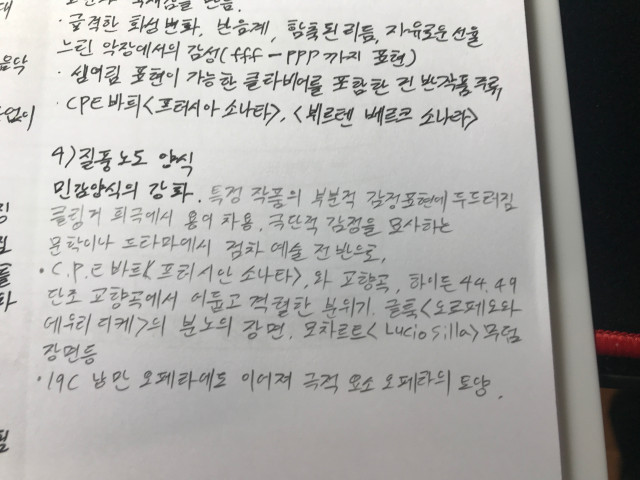 · 급격한 화성변화, 반음계, 함축된 리듬, 자유로운 선율
느린 악장에서의 감성(fff - ppp까지 표현)
· 셈여림 표현이 가능한 클라비어를 포함한 건반작품 주류,
· CPE 바흐 <프러시아 소나타>, <뷔르템 베르크 소나타>
4) 질풍노도 양식
민감양식의 강화. 특정 작품의 부분적 감정표현에 두드러짐
클링거 희곡에서 용어 차용. 극단적 감정을 묘사하는
문학이나 드라마에서 점차 예술 전반으로,
· C.P.E 바흐 <프러시안 소나타>, 와 교향곡, 하이든 44. 49
단조 교향곡에서 어둡고 격렬한 분위기. 글룩<오르페오와
에우리디케>의 분노의 장면. 모차르트< Lucio Silla> 무덤
장면등
· 19C 낭만 오페라에도 이어져 극적 요소 오페라의 토양.